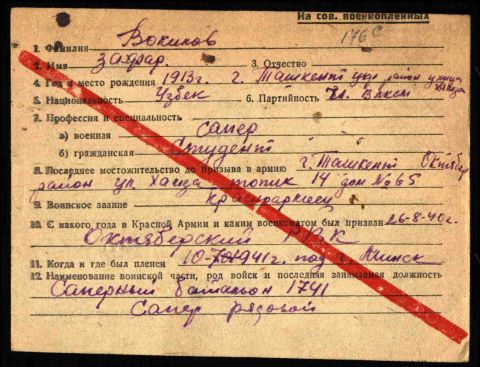 На сов. военнопленных
176с
1. Фамилия Вокилов
2. Имя Захрар. 3. Отчество
4. Год и место рождения 1913г. г. Ташкент укр район улица
5. Национальность Узбек 6. Партийность Чл. ВЛКСМ
7. Профессия и специальность
а) военная сапер
б) гражданская Студент
8. Последнее местожительство до призыва в армию г. Ташкент Октябр
район ул. топик 14 дом №65
9. Воинское звание Красноармеец
10. С какого года в Красной Армии и каким военкоматом был призван 26-8-40г.
Октяберский РВК
11. Когда и где был пленен 10-7-1941г. под г. Минск
12. Наименование воинской части, род войск и последняя занимаемая должность
Саперный батальон 1741
Сапер рядовой